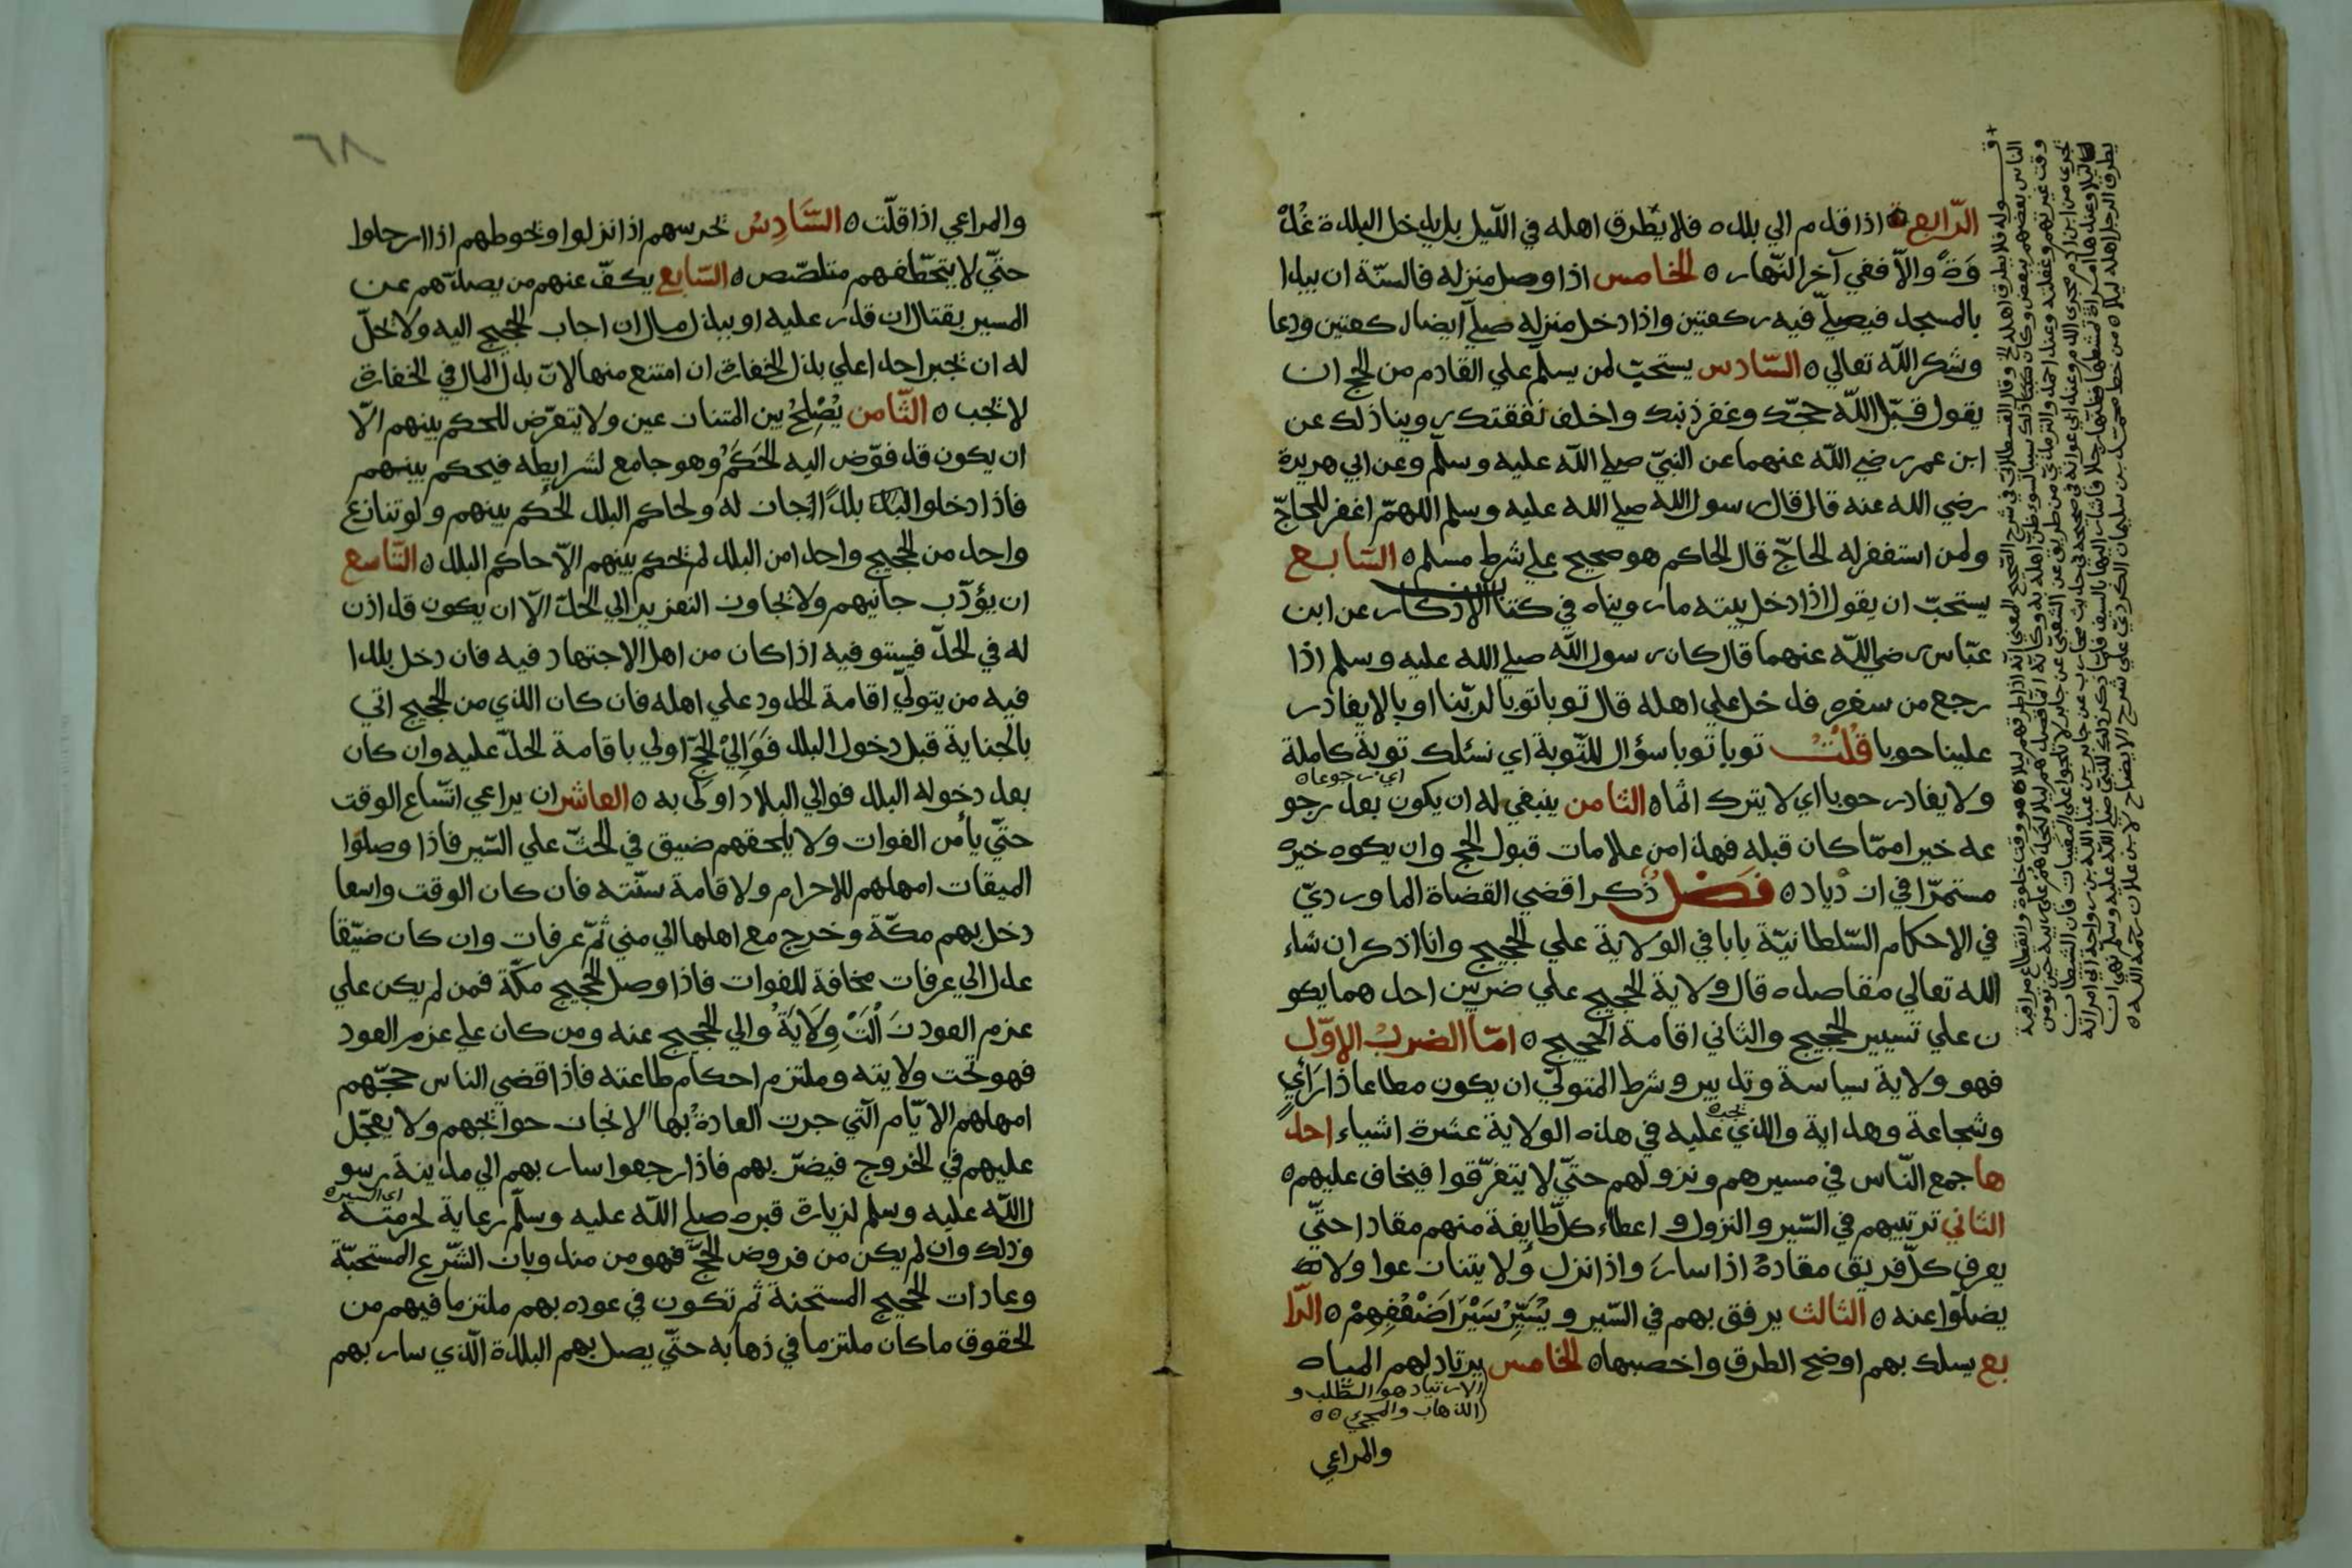 الرّابعة اذا قدم الي بلده فلا يطرق اهله في اللّيل بل يدخل البلدة غُدْ
وَةً والاّ ففي آخر النّهار ٥ الخامس اذا وصل منزله فالسنّة ان يبدا
بالمسجد فيصلّي فيه ركعتين واذا دخل منزله صلّي ايضا ركعتين ودعا
وشكر اللّه تعالي ٥ السّادس يستحبّ لمن يسلّم علي القادم من الحج ان
يقول قبّل اللّه حجّك وغفر ذنبك واخلف نفقتك روينا ذلك عن
ابن عمر رضي اللّه عنهما عن النبيّ صلي اللّه عليه وسلّم وعن ابي هريرة
رضي الله عنه قال قال رسول الله صلي الله عليه وسلم اللهمّ اغفر للحاجّ
ولمن استغفر له الحاجّ قال الحاكم هو صحيح علي شرط مسلم ٥ السّابع
يستحبّ ان يقول اذا دخل بيته ما رويناه في كتاب الاذكار عن ابن
عبّاس رضي اللّه عنهما قال كان رسول اللّه صلي الله عليه وسلم اذا
رجع من سفره فدخل علي اهله قال توبا توبا لربّنا اوبا لا يغادر
علينا حوبا قُلْتُ توبا توبا سؤال للتّوبة اي نسئلك توبة كاملة
اي رجوعا ٥
ولا يغادر حوبا اي لا يترك اثماه الثامن ينبغي له ان يكون بعد رجو
عه خيرا ممّا كان قبله فهذا من علامات قبول الحج وان يكوه خيره
مستمرّا في ازدياد ٥ فصل ذكر اقضي القضاة الماورديّ
في الاحكام السّلطانيّة بابا في الولاية علي الحجيج وانا اذكر ان شاء
الله تعالي مقاصده قال ولاية الحجيج علي ضربين احدهما يكو
ن علي تسيير الحجيج والثاني اقامة الحجيج ٥ امّا الضرب الاوّل
فهو ولاية سياسة وتدبير وشرط المتولّي ان يكون مطاعا ذا رَأيٍ
وشجاعة وهداية والذي عليه في هذه الولاية عشرة اشياء احد
ها جمع النّاس في مسيرهم ونزولهم حتّي لا يتفرّقوا فيخاف عليهم ٥
الثاني ترتيبهم في السّير والنزول و اعطاء كلّ طايفة منهم مقادا حتّي
يعرف كلّ فريق مقادهُ اذا سارَ واذا نزل ولا يتنازعوا ولا
يضلّوا عنه ٥ الثالث يرفق بهم في السّير ويُسَيِّرُ سَيْرَ اَضْعُفِهِمْ ٥ الرّا
بع يسلك بهم اوضح الطرق واخصبها ٥ الخامس يرتاد لهم المياه
الارتياد هو الطّلب و
الذهاب والمجيء ٥٥
والمراعي
٦٨
والمراعي اذا قلّت ٥ السَّادِسُ يحرسهم اذا نزلوا ويحوطهم اذا ارحلوا
حتّي لا يتخطّفهم متلصّص ٥ السّابع يكفّ عنهم من يصدّهم عن
المسير بقتال ان قدر عليه او ببذل مال ان اجاب الحجيج اليه ولا يحلّ
له ان يجبر احدا علي بذل الخفارة ان امتنع منها لانّ بذل المال في الخفارة
لا يجب ٥ الثّامن يُصْلِحُ بين المتنازعين ولا يتعرّض للحكم بينهم الاّ
ان يكون قد فوّض اليه الحَكَمُ وهو جامع لشرايطه فيحكم بينهم
فاذا دخلوا بلدًا جاز له ولحاكم البلد الحُكم بينهم ولو تنازع
واحد من الحجيج وواحد من البلد لم يحكم بينهم الاّ حاكم البلد ٥ التّاسع
ان يؤدّب جانيهم ولا يجاوز التعزير الي الحدّ الاّ ان يكون قد اذن
له في الحدّ فيستوفيه اذا كان من اهل الاجتهاد فيه فان دخل بلدا
فيه من يتولّي اقامة الحدود علي اهله فان كان الذي من الحجيج اتي
بالجناية قبل دخول البلد فَوَالِيْ الحجّ اولي باقامة الحدّ عليه وان كان
بعد دخوله البلد فوالي البلاد اولي به ٥ العاشر ان يراعي اتّساع الوقت
حتّي يأمن الفوات ولا يلحقهم ضيق في الحثّ علي السّير فاذا وصلوا
الميقات امهلهم للاحرام ولاقامة سنّته فان كان الوقت واسعا
دخل بهم مكّة وخرج مع اهلها الي مني ثمّ عرفات وان كان ضيّقا
عدل الي عرفات مخافة للفوات فاذا وصل الحجيج مكّة فمن لم يكن علي
عزم العود زَالَتْ وِلَايَةُ والي الحجيج عنه ومن كان علي عزم العود
فهو تحت ولايته وملتزم احكام طاعته فاذا قضي الناس حجّهم
امهلهم الايّام الّتي جرت العادةُ بها لانجاز حوايجهم ولا يعجّل
عليهم في الخروج فيضرّ بهم فاذا رجعوا سار بهم الي مدينة رسو
اي السير ٥
ل اللّه عليه وسلم لزيارة قبره صلي اللّه عليه وسلّم رعاية لحرمته
وذلك وان لم يكن من فروض الحجّ فهو من مندوبات الشّرع المستحبّة
وعادات الحجيج المستحنة ثم تكون في عوده بهم ملتزما فيهم من
الحقوق ما كان ملتزما في ذهابه حتّي يصل بهم البلدة الّذي سار بهم